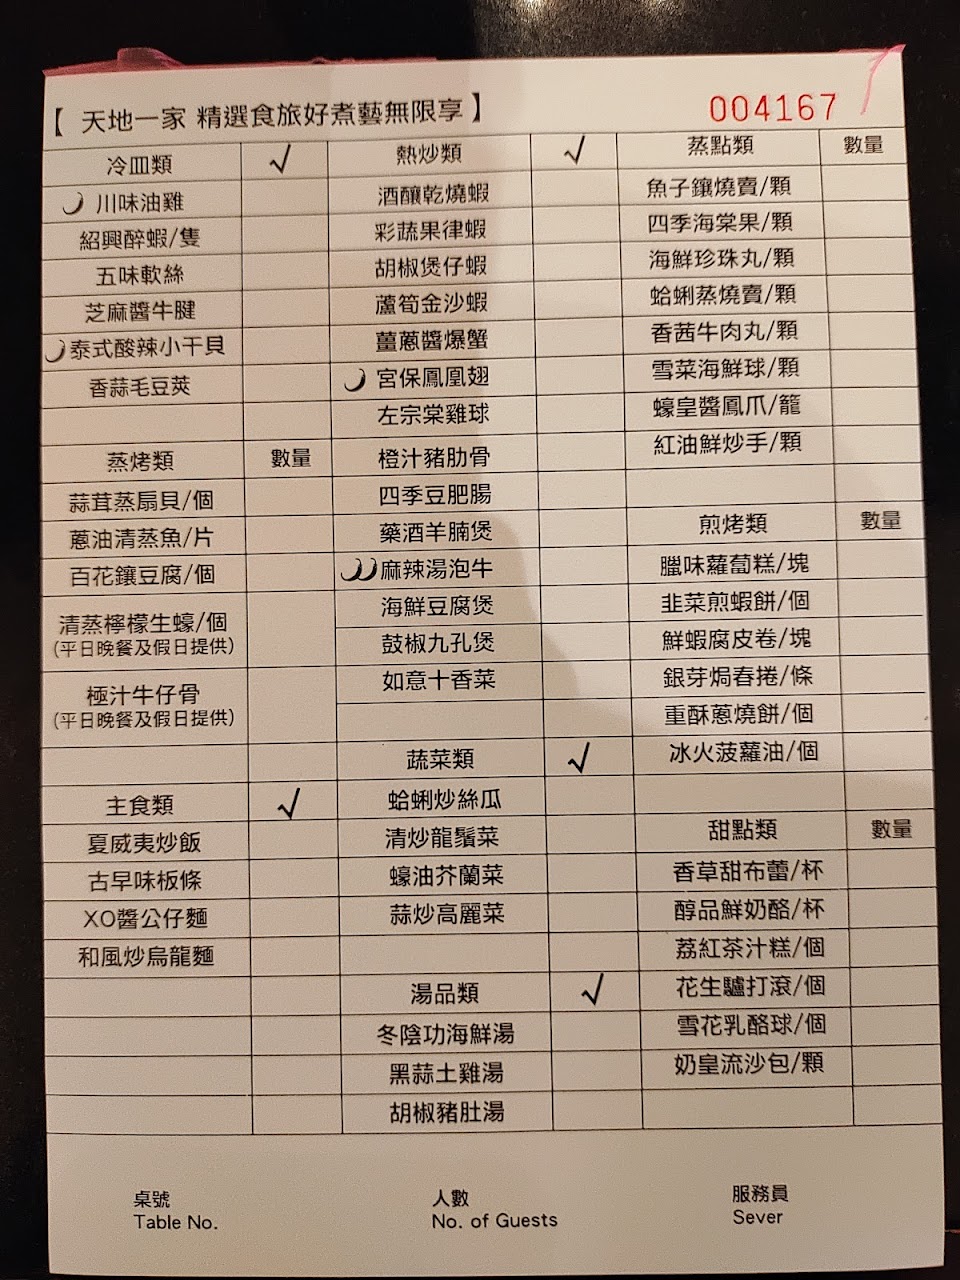 【 天地一家 精選食旅好煮藝無限享】
004167
冷皿類 √
川味油雞
紹興醉蝦/隻
五味軟絲
芝麻醬牛腱
泰式酸辣小干貝
香蒜毛豆莢
蒸烤類 數量
蒜茸蒸扇貝/個
蔥油清蒸魚/片
百花鑲豆腐/個
清蒸檸檬生蠔/個
(平日晚餐及假日提供)
極汁牛仔骨
(平日晚餐及假日提供)
主食類 √
夏威夷炒飯
古早味板條
XO醬公仔麵
和風炒烏龍麵
熱炒類 √
酒釀乾燒蝦
彩蔬果律蝦
胡椒煲仔蝦
蘆筍金沙蝦
薑蔥醬爆蟹
宮保鳳凰翅
左宗棠雞球
橙汁豬肋骨
四季豆肥腸
藥酒羊腩煲
麻辣湯泡牛
海鮮豆腐煲
鼓椒九孔煲
如意十香菜
蔬菜類 √
蛤蜊炒絲瓜
清炒龍鬚菜
蠔油芥蘭菜
蒜炒高麗菜
湯品類 √
冬陰功海鮮湯
黑蒜土雞湯
胡椒豬肚湯
蒸點類 數量
魚子鑲燒賣/顆
四季海棠果/顆
海鮮珍珠丸/顆
蛤蜊蒸燒賣/顆
香茜牛肉丸/顆
雪菜海鮮球/顆
蠔皇醬鳳爪/籠
紅油鮮炒手/顆
煎烤類 數量
臘味蘿蔔糕/塊
韭菜煎蝦餅/個
鮮蝦腐皮卷/塊
銀芽焗春捲/條
重酥蔥燒餅/個
冰火菠蘿油/個
甜點類 數量
香草甜布蕾/杯
醇品鮮奶酪/杯
荔紅茶汁糕/個
花生驢打滾/個
雪花乳酪球/個
奶皇流沙包/顆
桌號
Table No.
人數
No. of Guests
服務員
Sever